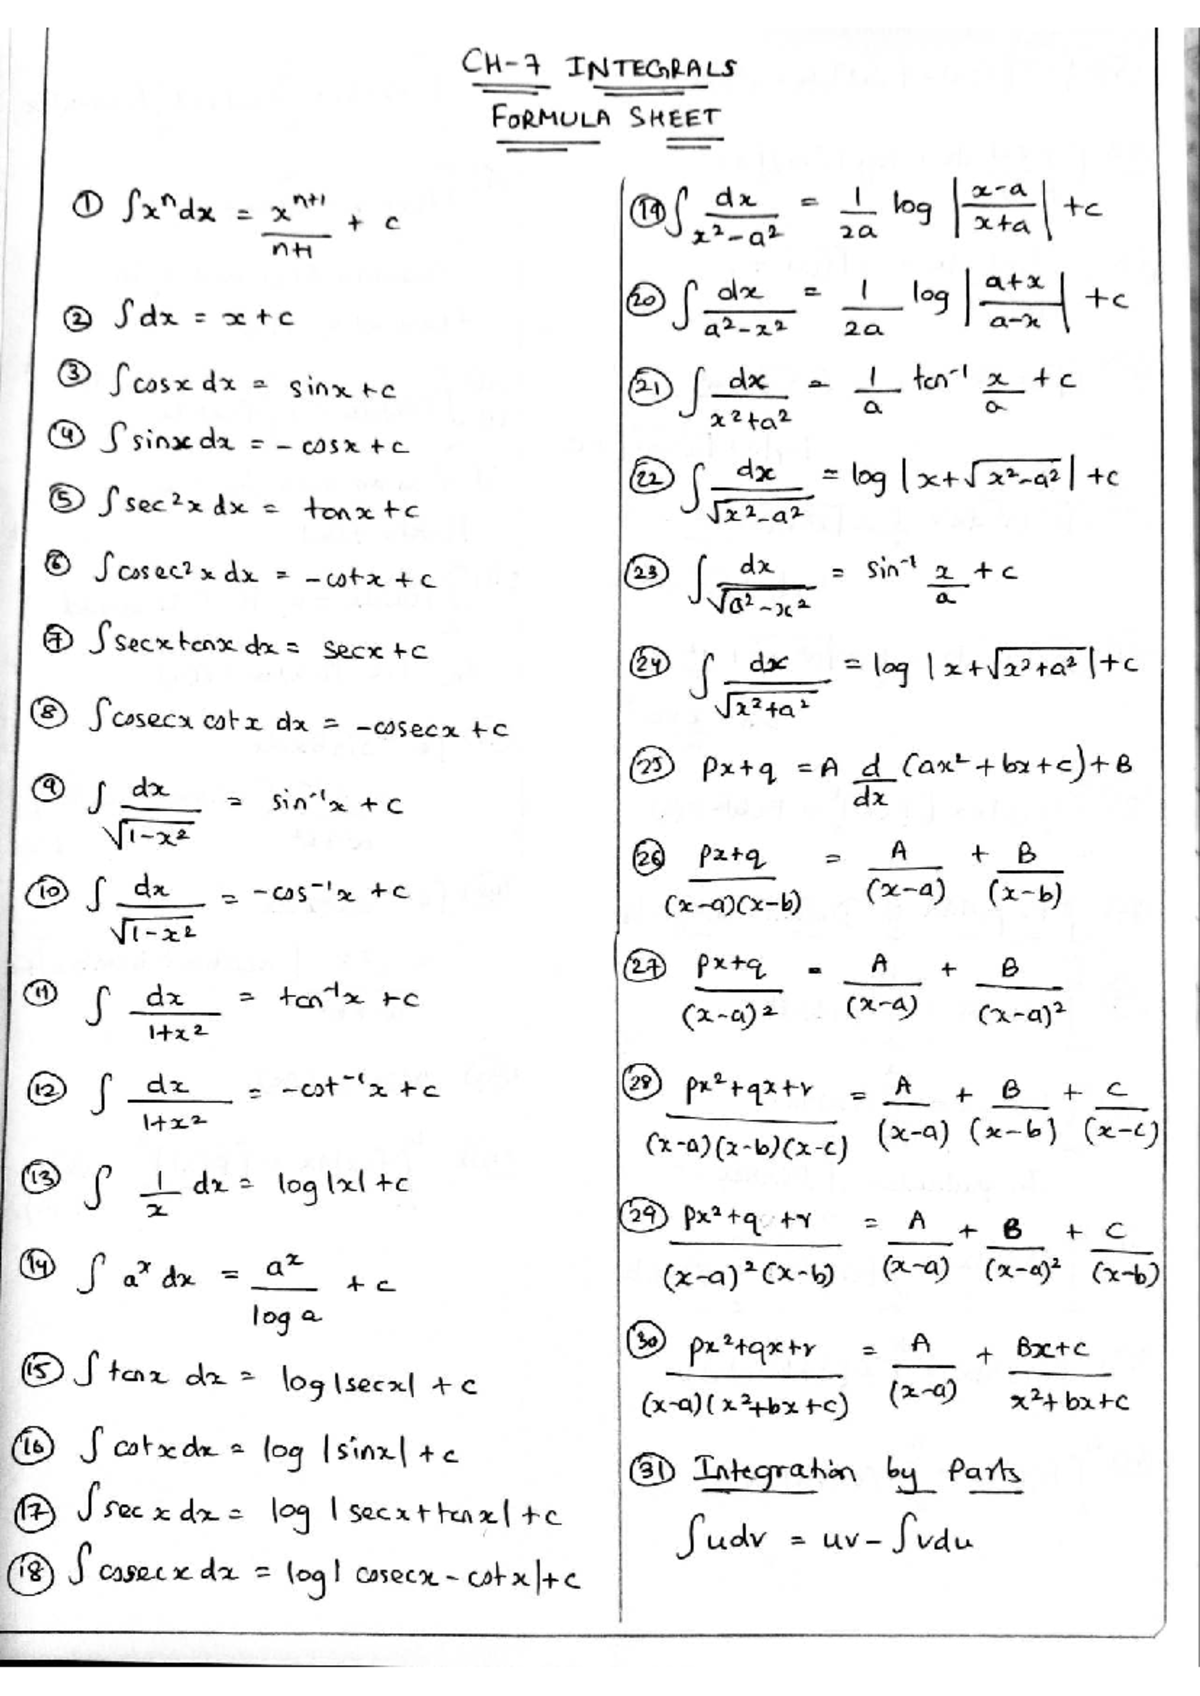 CH-7 INTEGRALS
FORMULA SHEET
① ∫xⁿdx = xⁿ⁺¹/n+1 + c
② ∫dx = x+c
③ ∫cosx dx = sinx+c
④ ∫sinx dx = - cosx + c
⑤ ∫sec²x dx = tanx+c
⑥ ∫cosec²x dx = -cotx + c
⑦ ∫secxtanx dx = secx +c
⑧ ∫cosecx cotx dx = -cosecx +c
⑨ ∫ dx/√(1-x²) = sin⁻¹x + c
⑩ ∫ dx/√(1-x²) = -cos⁻¹x +c
⑪ ∫ dx/1+x² = tan⁻¹x +c
⑫ ∫ dx/1+x² = -cot⁻¹x +c
⑬ ∫ 1/x dx = log|x| +c
⑭ ∫ aˣ dx = aˣ/log a + c
⑮ ∫tanx dx = log|secx| + c
⑯ ∫ cotx dx = log |sinx| + c
⑰ ∫sec x dx = log | secx+tanx| +c
⑱ ∫ cosec x dx = log| cosecx - cotx|+c
⑲ ∫ dx/x²-a² = 1/2a log |x-a/x+a| +c
⑳ ∫ dx/a²-x² = 1/2a log |a+x/a-x| +c
㉑ ∫ dx/x²+a² = 1/a tan⁻¹ x/a + c
㉒ ∫ dx/√(x²-a²) = log |x+√(x²-a²)| +c
㉓ ∫ dx/√(a²-x²) = sin⁻¹ x/a + c
㉔ ∫ dx/√(x²+a²) = log |x+√(x²+a²)|+c
㉕ px+q = A d/dx (ax²+bx+c)+B
㉖ px+q/(x-a)(x-b) = A/(x-a) + B/(x-b)
㉗ px+q/(x-a)² = A/(x-a) + B/(x-a)²
㉘ px²+qx+r/(x-a)(x-b)(x-c) = A/(x-a) + B/(x-b) + C/(x-c)
㉙ px²+q +r/(x-a)²(x-b) = A/(x-a) + B/(x-a)² + C/(x-b)
㉚ px²+qx+r/(x-a)(x²+bx+c) = A/(x-a) + Bx+c/x²+bx+c
㉛ Integration by Parts
∫udv = uv-∫vdu